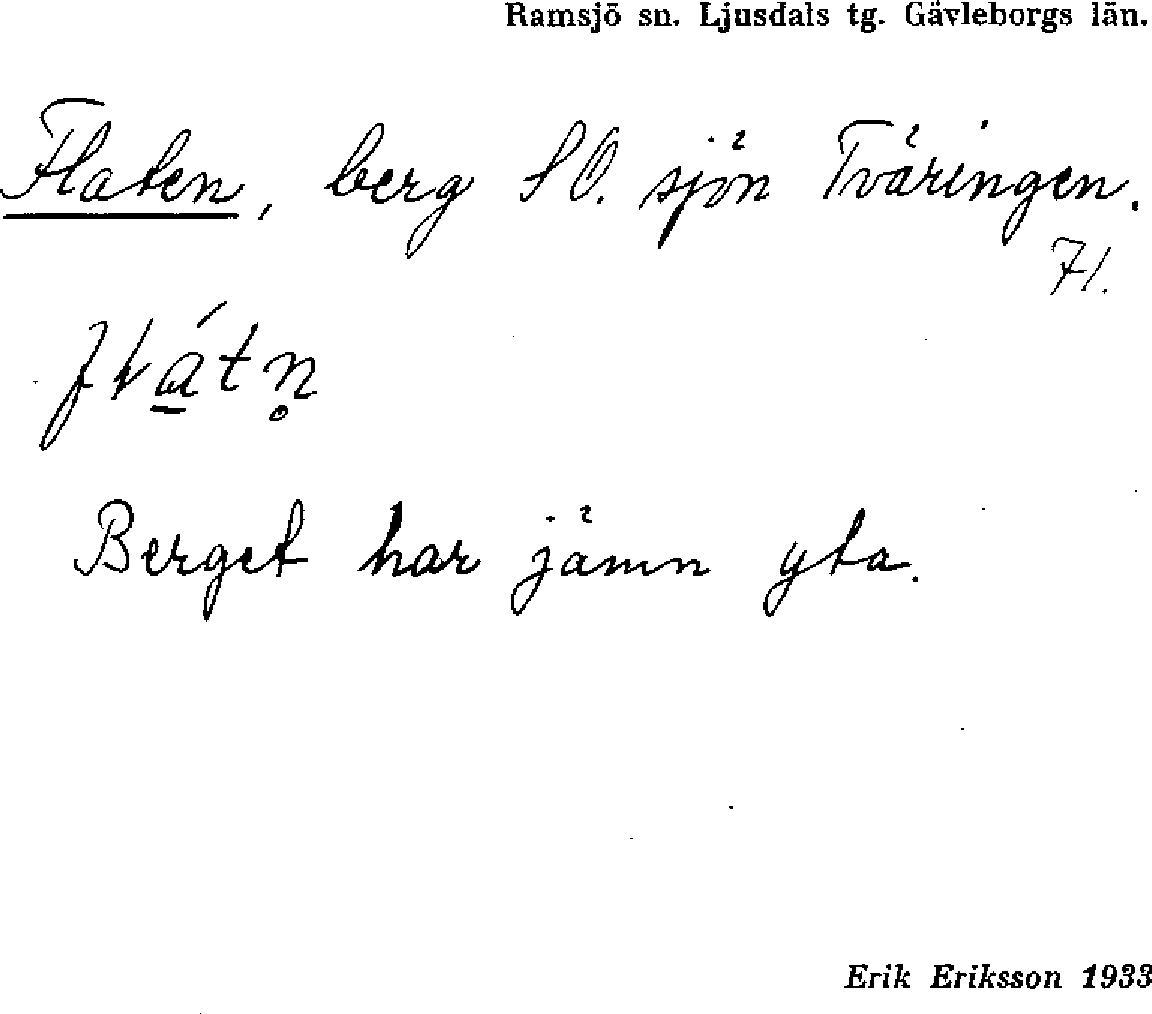 Ramsjö sn. Ljusdals tg. Gävleborgs län.
Flaten, berg SO. sjön Tväringen.
71.
Berget har jämn yta.
Erik Eriksson 1933